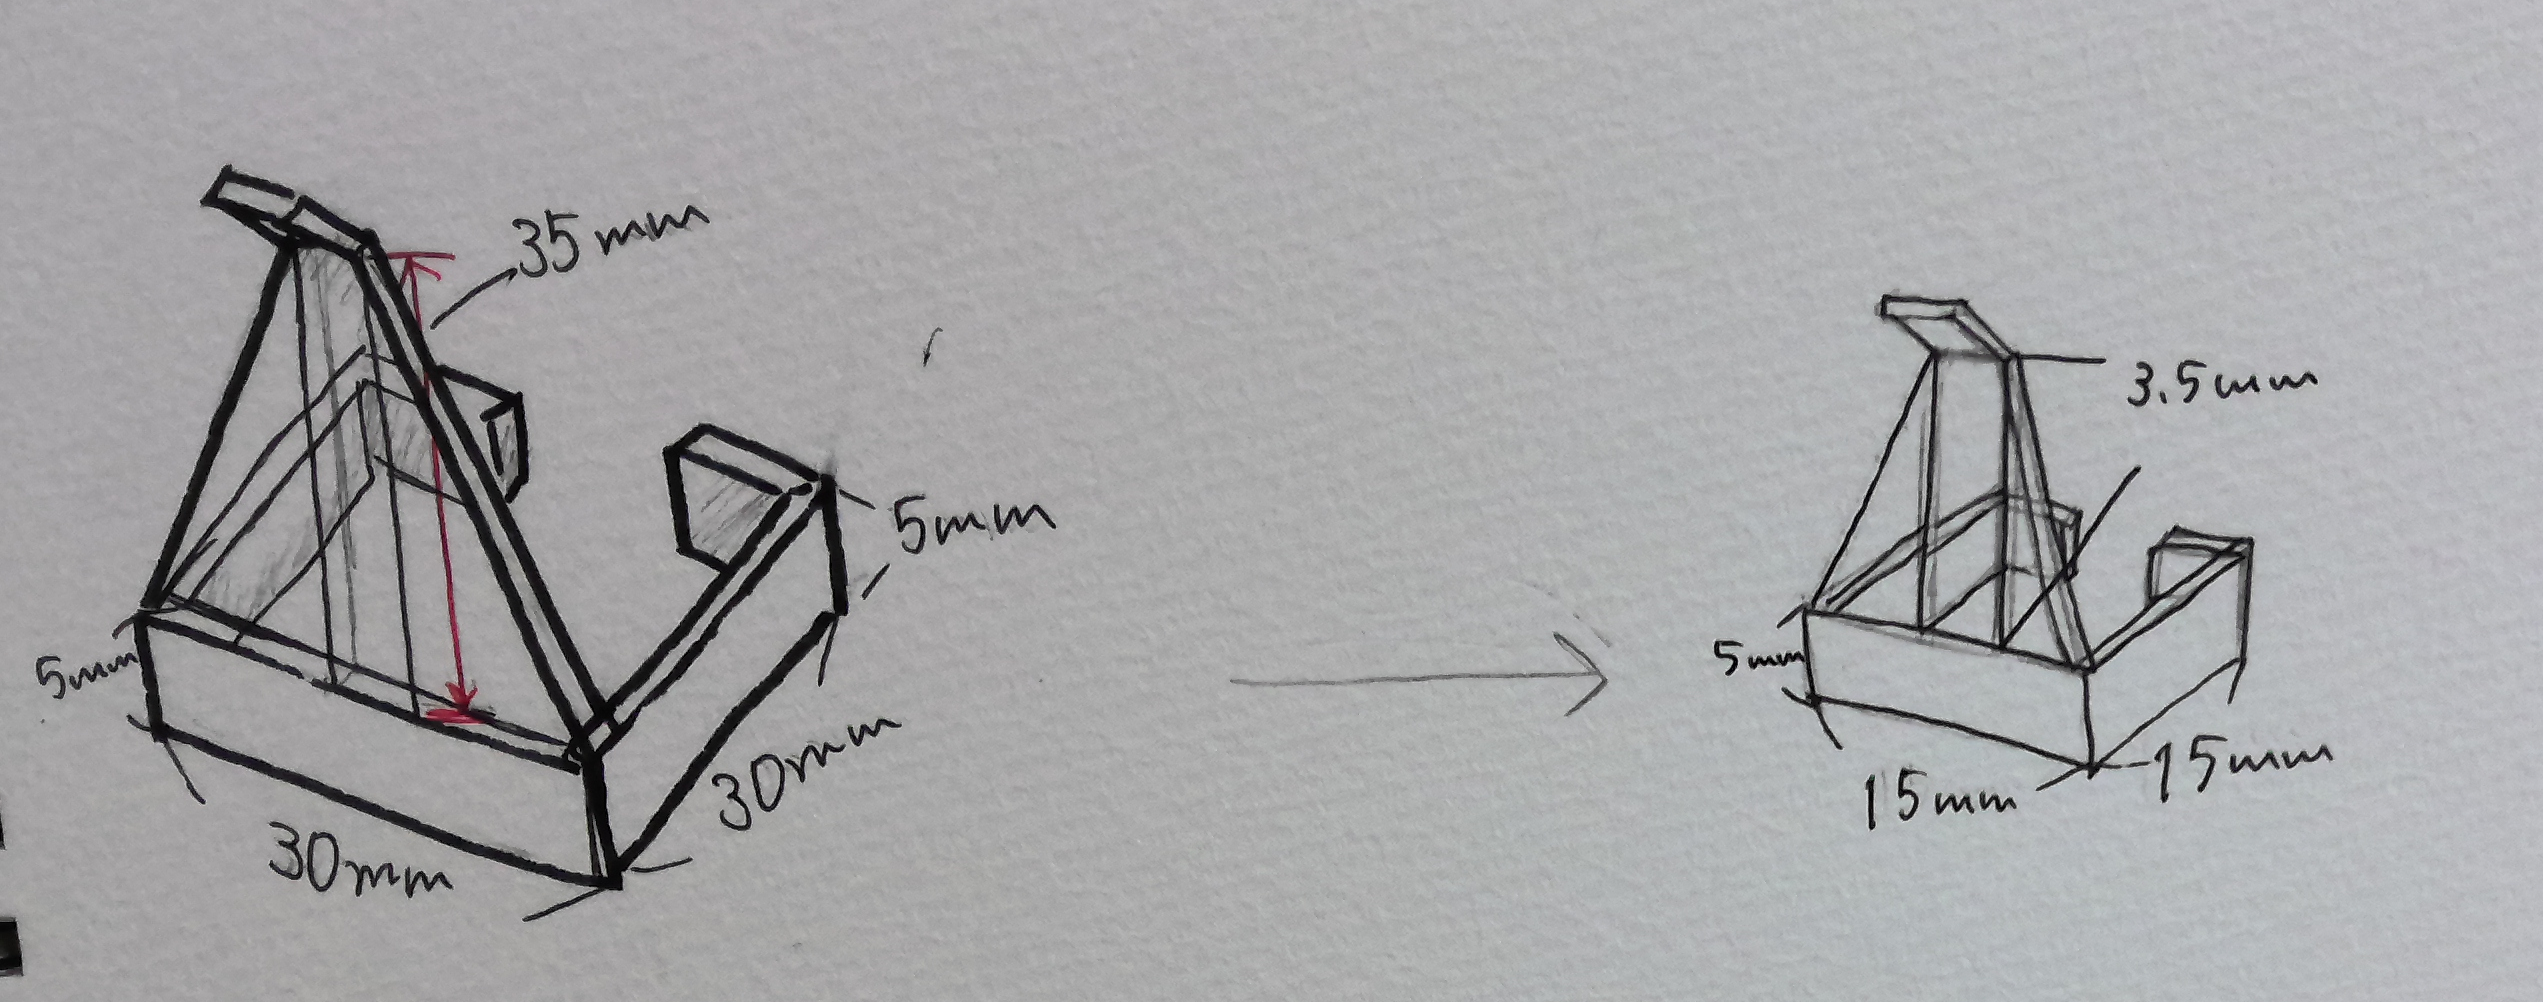 35mm
5mm
5mm
30mm
30mm
3.5mm
5mm
15mm
15mm